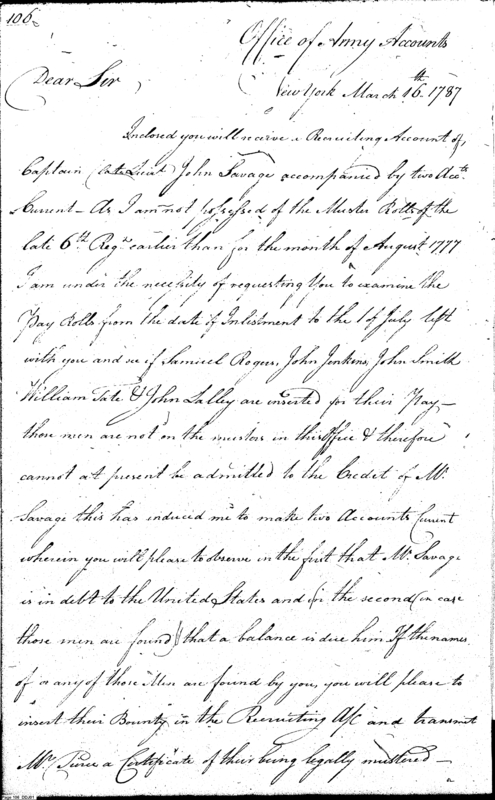 106
Office of Army Accounts
Dear Sir
New York March 16th 1787
Inclosed you will receive a Recruiting Account of
Captain (late Lieut) John Savage accompanied by two Accts
Current - As I am not possessed of the Muster Rolls of the
late 6th Regt earlier than for the month of August 1777
I am under the necessity of requesting You to examine the
Pay Rolls from the date of Inlistment to the 1 of July left
with you and see if Samuel Rogers, John Jenkins, John Smith
William Tate & John Lalley are inserted for their Pay -
those men are not on the musters in this Office & therefore
cannot at present be admitted to the Credit of Mr
Savage this has induced me to make two Accounts Current
wherein you will please to observe in the first that Mr Savage
is in debt to the United States and in the second (in case
those men are found) that a balance is due him If the names
of or any of those Men are found by you, you will please to
insert their Bounty in the Recruiting A/C and transmit
Mr Pierce a Certificate of their being legally mustered -